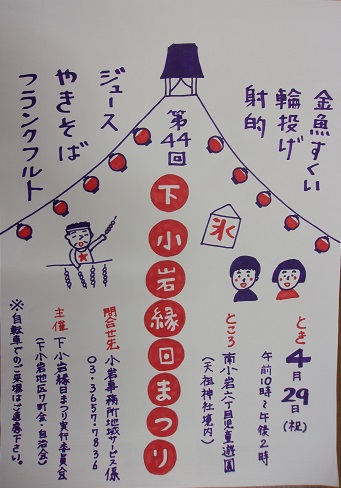 金魚すくい
輪投げ
射的
第44回
下小岩縁日まつり
ジュース
やきそば
フランクフルト
氷
とき 4月29日(祝)
午前10時〜午後2時
ところ 南小岩六丁目児童遊園
(天祖神社境内)
問合せ先 小岩事務所地域サービス係
03-3657-7836
主催 下小岩縁日まつり実行委員会
(下小岩地区7町会・自治会)
※自転車でのご来場はご遠慮下さい。